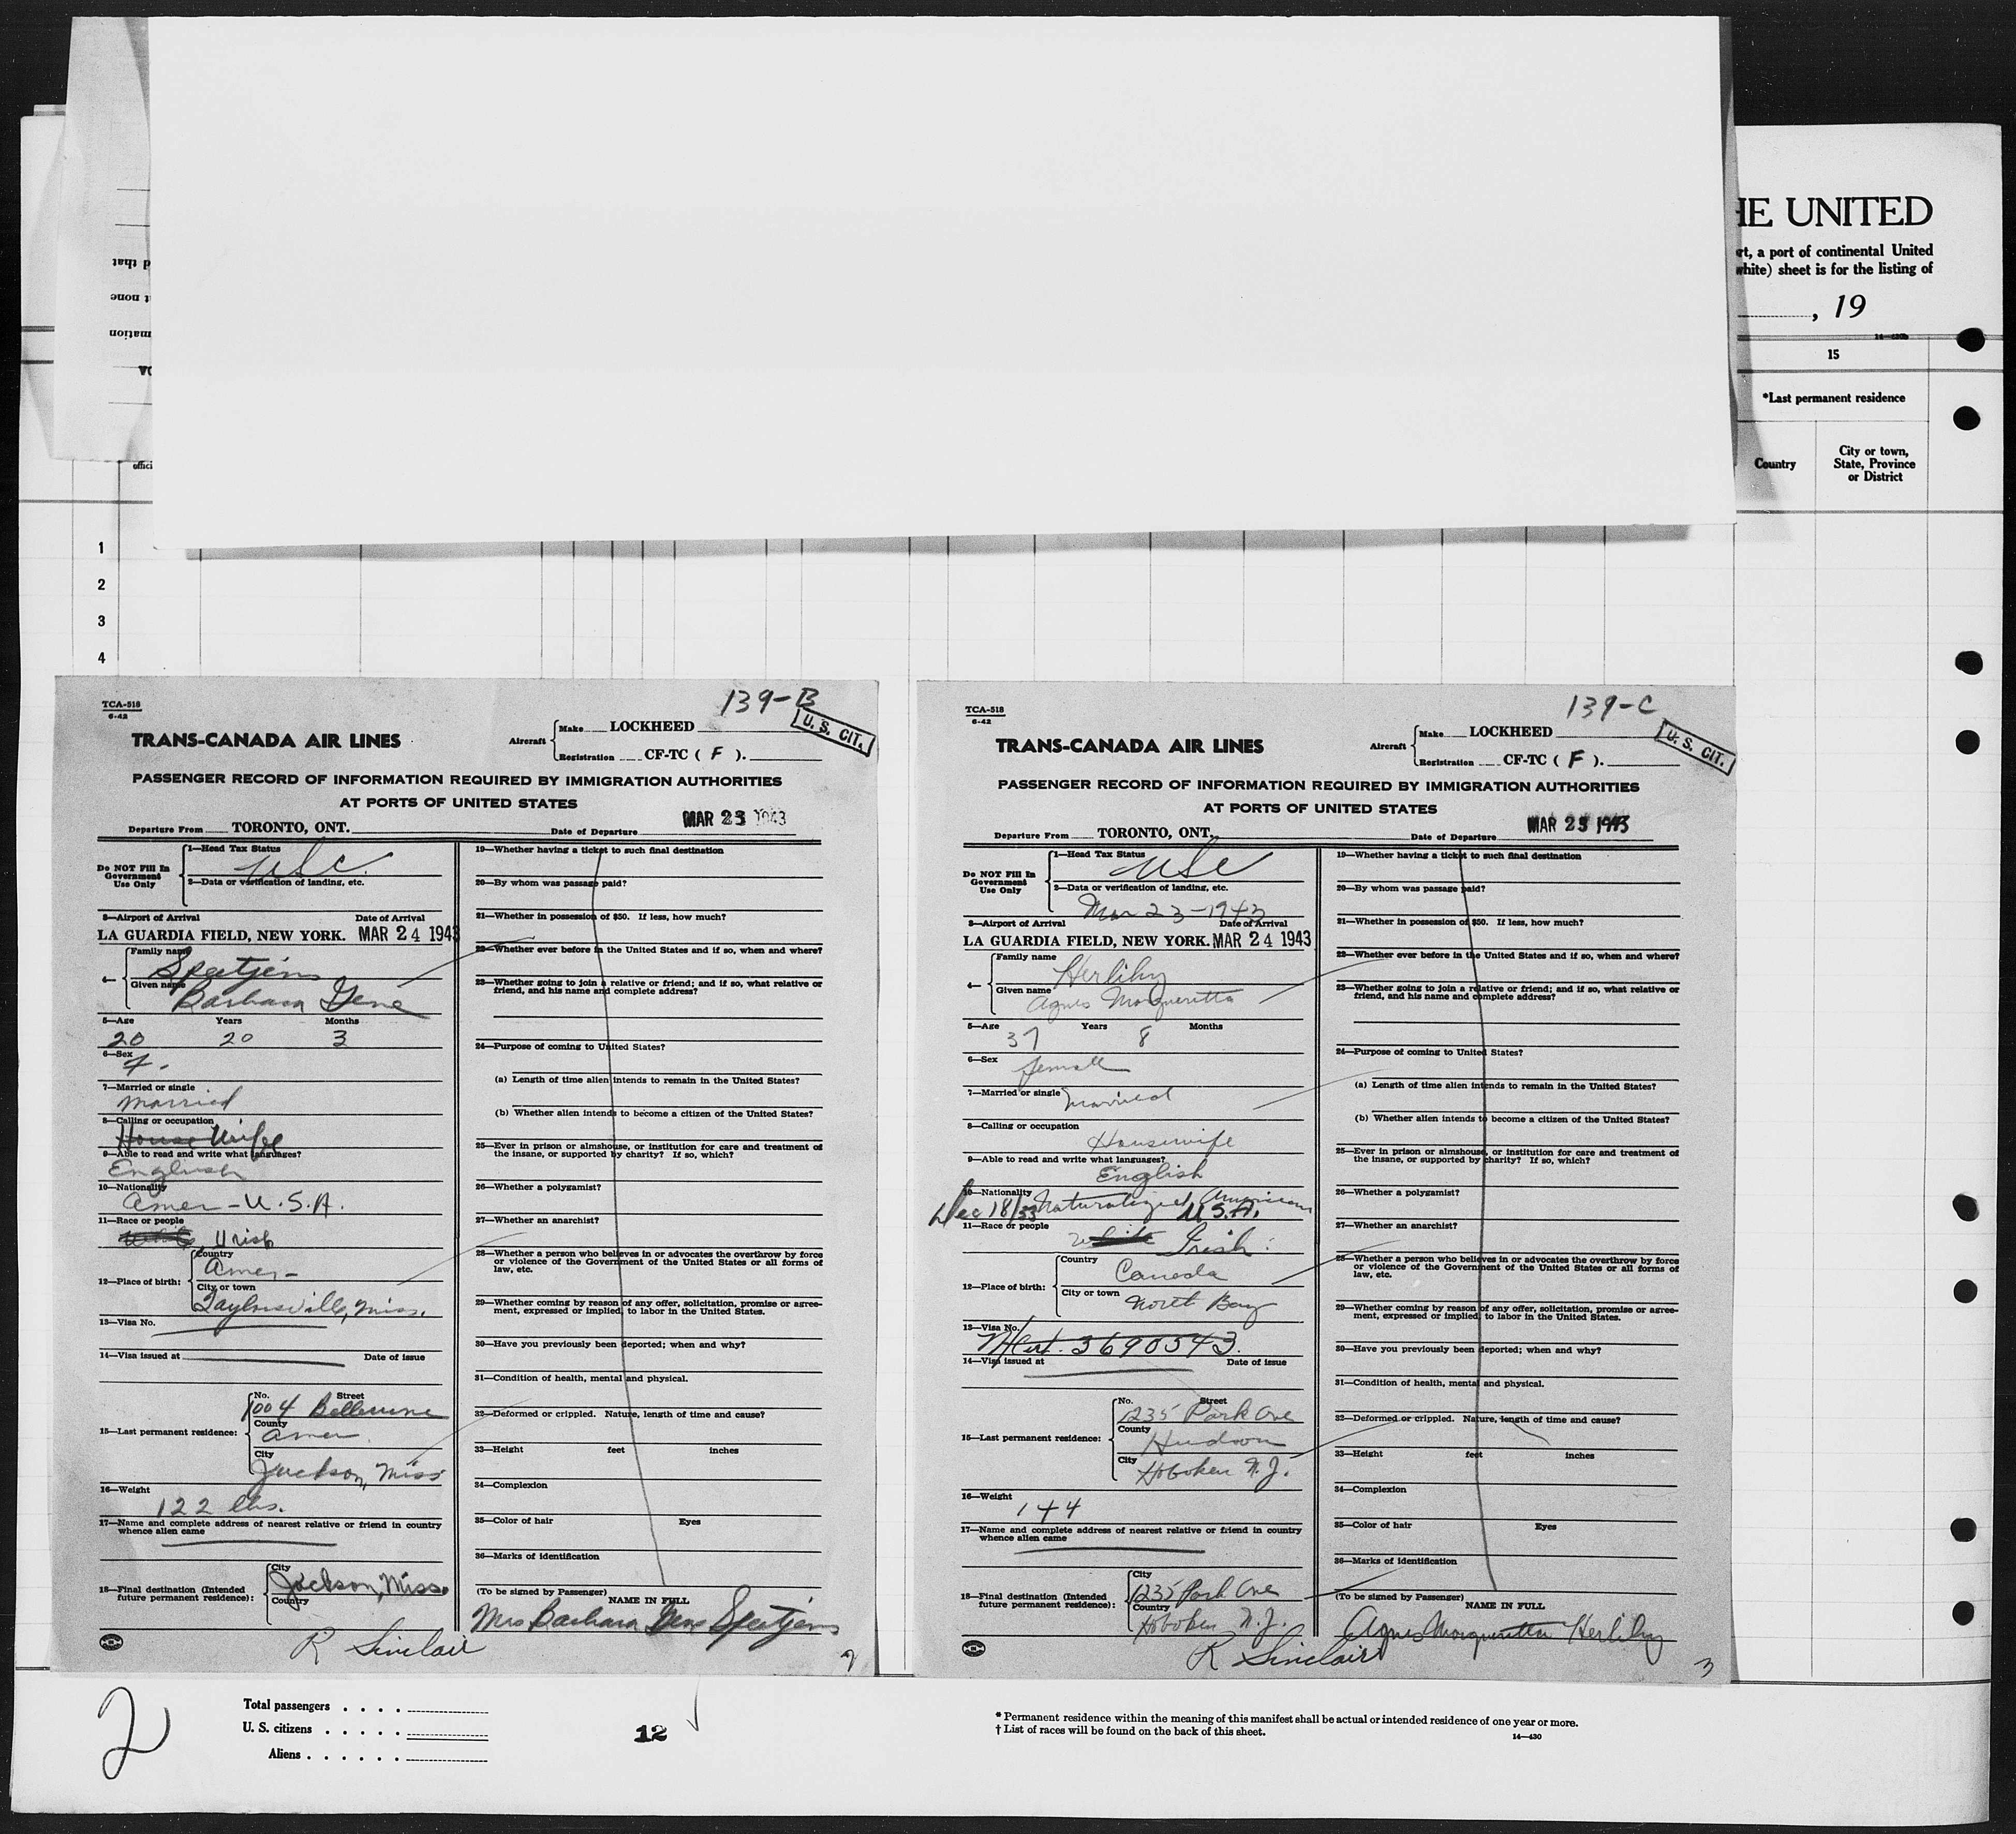 HE UNITED
rt, a port of continental United
white) sheet is for the listing of
, 19
14—430b
15
*Last permanent residence
Country
City or town,
State, Province
or District
d that
t none
rmation
offici
1
2
3
4
TCA-518
6-42
139-B
U. S. CIT.
TRANS-CANADA AIR LINES
Aircraft
Make LOCKHEED
Registration CF-TC ( F ).
PASSENGER RECORD OF INFORMATION REQUIRED BY IMMIGRATION AUTHORITIES
AT PORTS OF UNITED STATES
MAR 23 1943
Departure From TORONTO, ONT. Date of Departure
Do NOT Fill In
Government
Use Only
1—Head Tax Status
USC
2—Data or verification of landing, etc.
3—Airport of Arrival Date of Arrival
LA GUARDIA FIELD, NEW YORK. MAR 24 1943
4—
Family name
Speetjens
Given name
Barbara Gene
5—Age Years Months
20 20 3
6—Sex
F.
7—Married or single
Married
8—Calling or occupation
House Wife
9—Able to read and write what languages?
English
10—Nationality
Amer - U.S.A.
11—Race or people
White Irish
12—Place of birth:
Country
Amer -
City or town
Taylorsville, Miss.
13—Visa No.
14—Visa issued at Date of issue
15—Last permanent residence:
No. Street
1004 Bellevue
County
Amer.
City
Jackson, Miss
16—Weight
122 lbs.
17—Name and complete address of nearest relative or friend in country
whence alien came
18—Final destination (Intended
future permanent residence):
City
Jackson, Miss.
Country
R Sinclair
19—Whether having a ticket to such final destination
20—By whom was passage paid?
21—Whether in possession of $50. If less, how much?
22—Whether ever before in the United States and if so, when and where?
23—Whether going to join a relative or friend; and if so, what relative or
friend, and his name and complete address?
24—Purpose of coming to United States?
(a) Length of time alien intends to remain in the United States?
(b) Whether alien intends to become a citizen of the United States?
25—Ever in prison or almshouse, or institution for care and treatment of
the insane, or supported by charity? If so, which?
26—Whether a polygamist?
27—Whether an anarchist?
28—Whether a person who believes in or advocates the overthrow by force
or violence of the Government of the United States or all forms of
law, etc.
29—Whether coming by reason of any offer, solicitation, promise or agree-
ment, expressed or implied, to labor in the United States.
30—Have you previously been deported; when and why?
31—Condition of health, mental and physical.
32—Deformed or crippled. Nature, length of time and cause?
33—Height feet inches
34—Complexion
35—Color of hair Eyes
36—Marks of identification
(To be signed by Passenger)
NAME IN FULL
Mrs Barbara Gene Speetjens
2
TCA-518
6-42
139-C
U. S. CIT.
TRANS-CANADA AIR LINES
Aircraft
Make LOCKHEED
Registration CF-TC ( F ).
PASSENGER RECORD OF INFORMATION REQUIRED BY IMMIGRATION AUTHORITIES
AT PORTS OF UNITED STATES
MAR 23 1943
Departure From TORONTO, ONT. Date of Departure
Do NOT Fill In
Government
Use Only
1—Head Tax Status
USC
2—Data or verification of landing, etc.
Mar 23-1943
3—Airport of Arrival Date of Arrival
LA GUARDIA FIELD, NEW YORK. MAR 24 1943
4—
Family name
Herlihy
Given name
Agnes Marqueritta
5—Age Years Months
37 8
6—Sex
female
7—Married or single married
8—Calling or occupation
Housewife
9—Able to read and write what languages?
English
10—Nationality
Dec 18/33 Naturalized American
U.S.A.
11—Race or people
white Irish.
12—Place of birth:
Country
Canada
City or town
North Bay
13—Visa No.
N Cert. 3690543.
14—Visa issued at Date of issue
15—Last permanent residence:
No. Street
1235 Park Ave
County
Hudson
City
Hoboken N.J.
16—Weight
144
17—Name and complete address of nearest relative or friend in country
whence alien came
18—Final destination (Intended
future permanent residence):
City
1235 Park Ave
Country
Hoboken N.J.
R Sinclair
19—Whether having a ticket to such final destination
20—By whom was passage paid?
21—Whether in possession of $50. If less, how much?
22—Whether ever before in the United States and if so, when and where?
23—Whether going to join a relative or friend; and if so, what relative or
friend, and his name and complete address?
24—Purpose of coming to United States?
(a) Length of time alien intends to remain in the United States?
(b) Whether alien intends to become a citizen of the United States?
25—Ever in prison or almshouse, or institution for care and treatment of
the insane, or supported by charity? If so, which?
26—Whether a polygamist?
27—Whether an anarchist?
28—Whether a person who believes in or advocates the overthrow by force
or violence of the Government of the United States or all forms of
law, etc.
29—Whether coming by reason of any offer, solicitation, promise or agree-
ment, expressed or implied, to labor in the United States.
30—Have you previously been deported; when and why?
31—Condition of health, mental and physical.
32—Deformed or crippled. Nature, length of time and cause?
33—Height feet inches
34—Complexion
35—Color of hair Eyes
36—Marks of identification
(To be signed by Passenger)
NAME IN FULL
Agnes Marqueritta Herlihy
3
2
Total passengers . . . .
U. S. citizens . . . . .
Aliens . . . . . .
12
* Permanent residence within the meaning of this manifest shall be actual or intended residence of one year or more.
† List of races will be found on the back of this sheet.
14—430